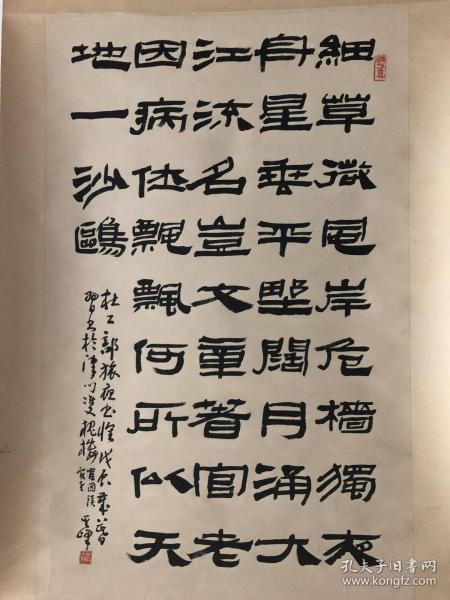 細草微風岸危檣獨夜
舟星垂平野闊月涌大
江流名豈文章著官老
因病休飄飄何所似天
地一沙鷗
杜工部旅夜書懷戊辰
習書於津門雙槐樓
孔夫子旧书网
kongfz.com